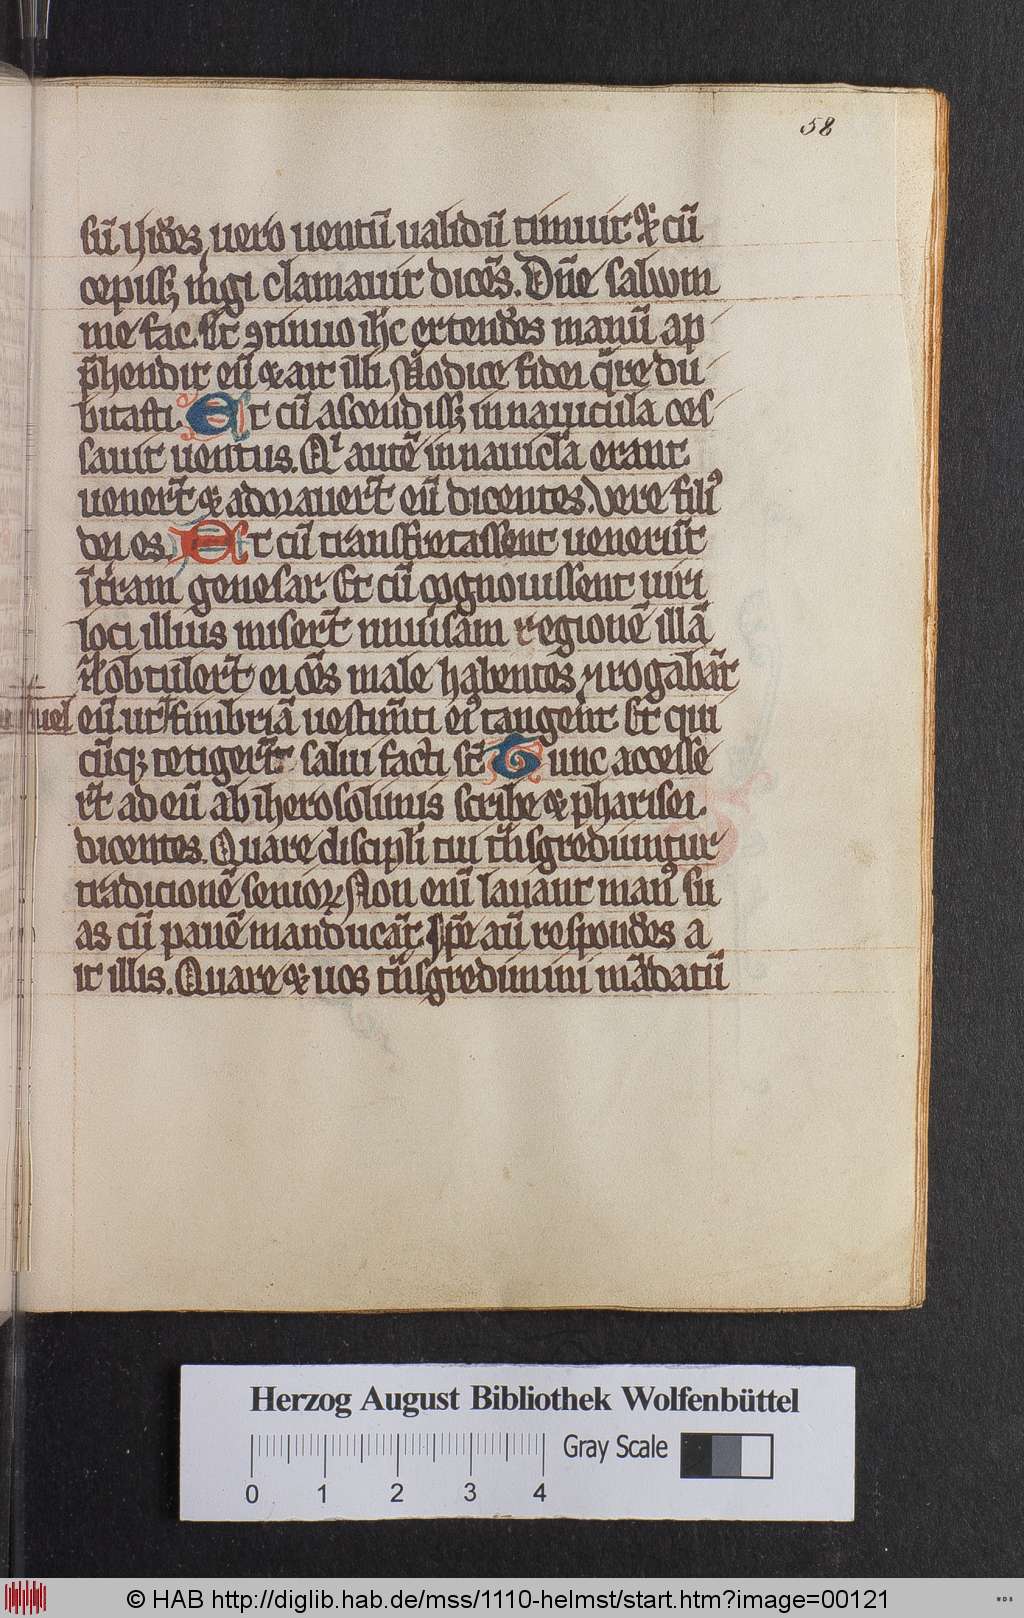 58
sū Uidēs uero uentū ualidū timuit & cū
cepissꝫ mgi clamauit dicēs. Dn̄e saluum
me fac. Et ꝯtinuo ih̄c extendēs manū ap
p̄hendit eū & ait illi. Modice fidei q̄re du
bitasti. Et cū ascendissꝫ in nauicula ces
sauit uentus. Qͥ autē in nauicl̄a erant
uenert̄ & adorauert̄ eū dicentes. Vere filiꝰ
dei es. Et cū transfretassent uenerūt
ī t̄ram genesar. Et cū cognouissent uiri
loci illius misert̄ in uniu̾sam regionē illā
⁊ obtulert̄ ei oēs male habentes ⁊ rogabāt
eū. ut ł fimbriā uestim̄ti eiꝰ tangent̄. Et qui
cūqꝫ tetigert̄ salui facti st̄ Tunc accesse
rt̄ ad eū ab iherosolimis scribe & pharisei
dicentes. Quare discipl̄i tui tͣnsgrediuntur
tradicionē senioꝝ Non eni̅ lauant manꝰ su
as cū panē manducāt. Ip̄e aū respondēs a
it illis. Quare & uos tͣnsgredimini mādatū
Herzog August Bibliothek Wolfenbüttel
Gray Scale
0 1 2 3 4
© HAB http://diglib.hab.de/mss/1110-helmst/start.htm?image=00121